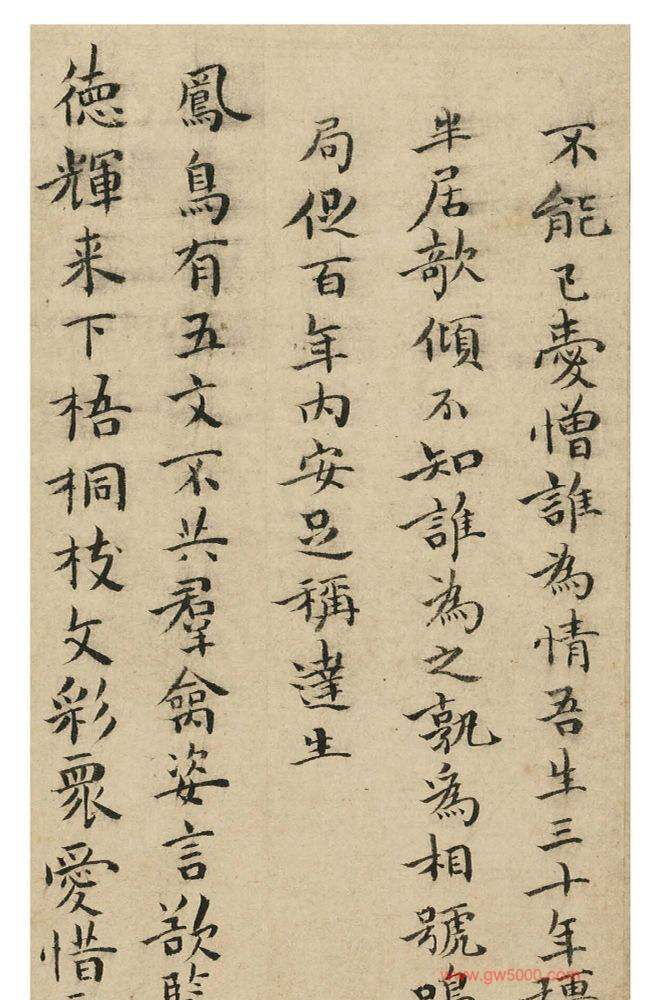 不能已憎誰為情吾生三十年
半居欹傾不知誰為之孰為相號鳴
局促百年内安足稱達生
鳳鳥有五文不共羣禽姿言欲
徳輝来下梧桐枝文彩眾愛惜
www.gw5000.com